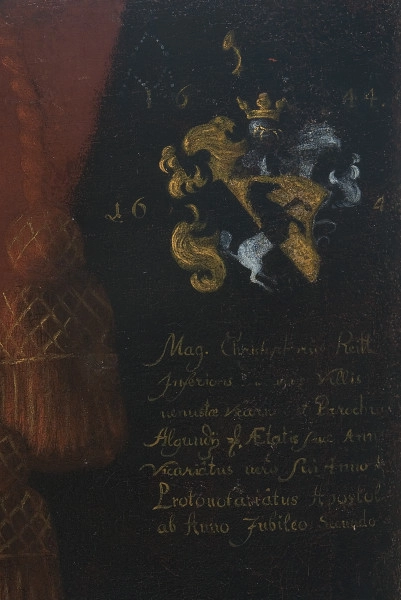 16 44.
16 4
Mag. Christophorus Reitt
Inferioris Vallis
venustæ Vicari et Parochus
Algundy Ætatis suæ Ann
Vicariatus vero sui Anno
Protonotariatus Apostol
ab Anno Jubileo Secundo